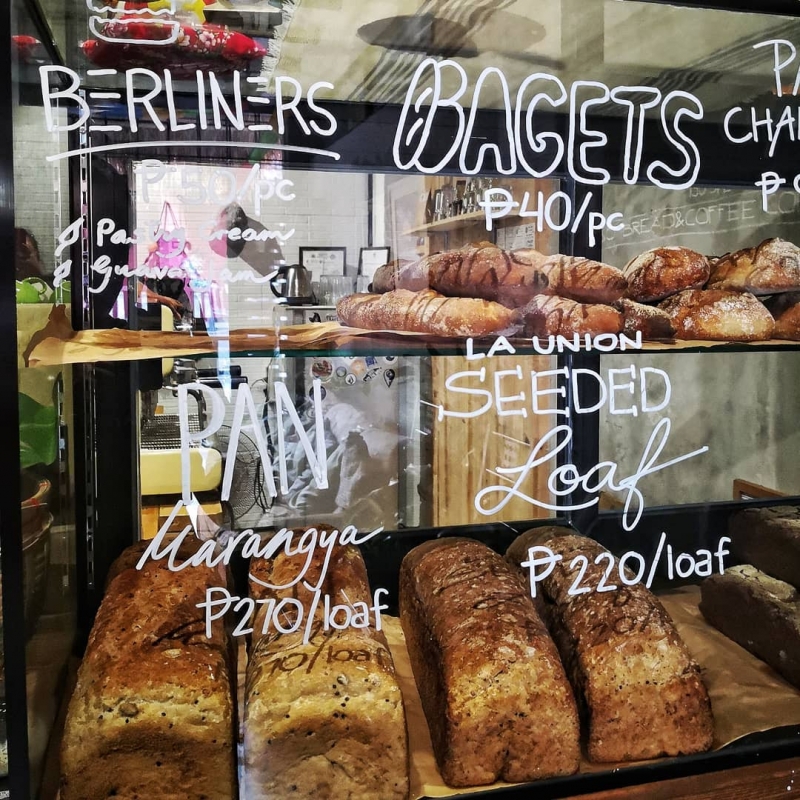 BERLINERS
₱50/pc
Pastry Cream
Guava Jam
BAGETS
₱40/pc
PA
CHA
₱9
BREAD&COFFEE
LA UNION
SEEDED
Loaf
₱220/loaf
PAN
Marangya
₱270/loaf